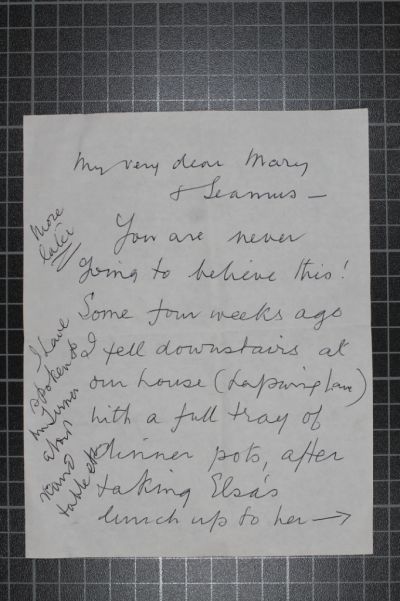 My very dear Mary
& Seamus —
You are never
going to believe this!
Some four weeks ago
I fell downstairs at
our house (Lapwing Lane)
with a full tray of
dinner pots, after
taking Elsa's
lunch up to her →
More
later
I have
spoken to
Mr Turner
about
round
table etc